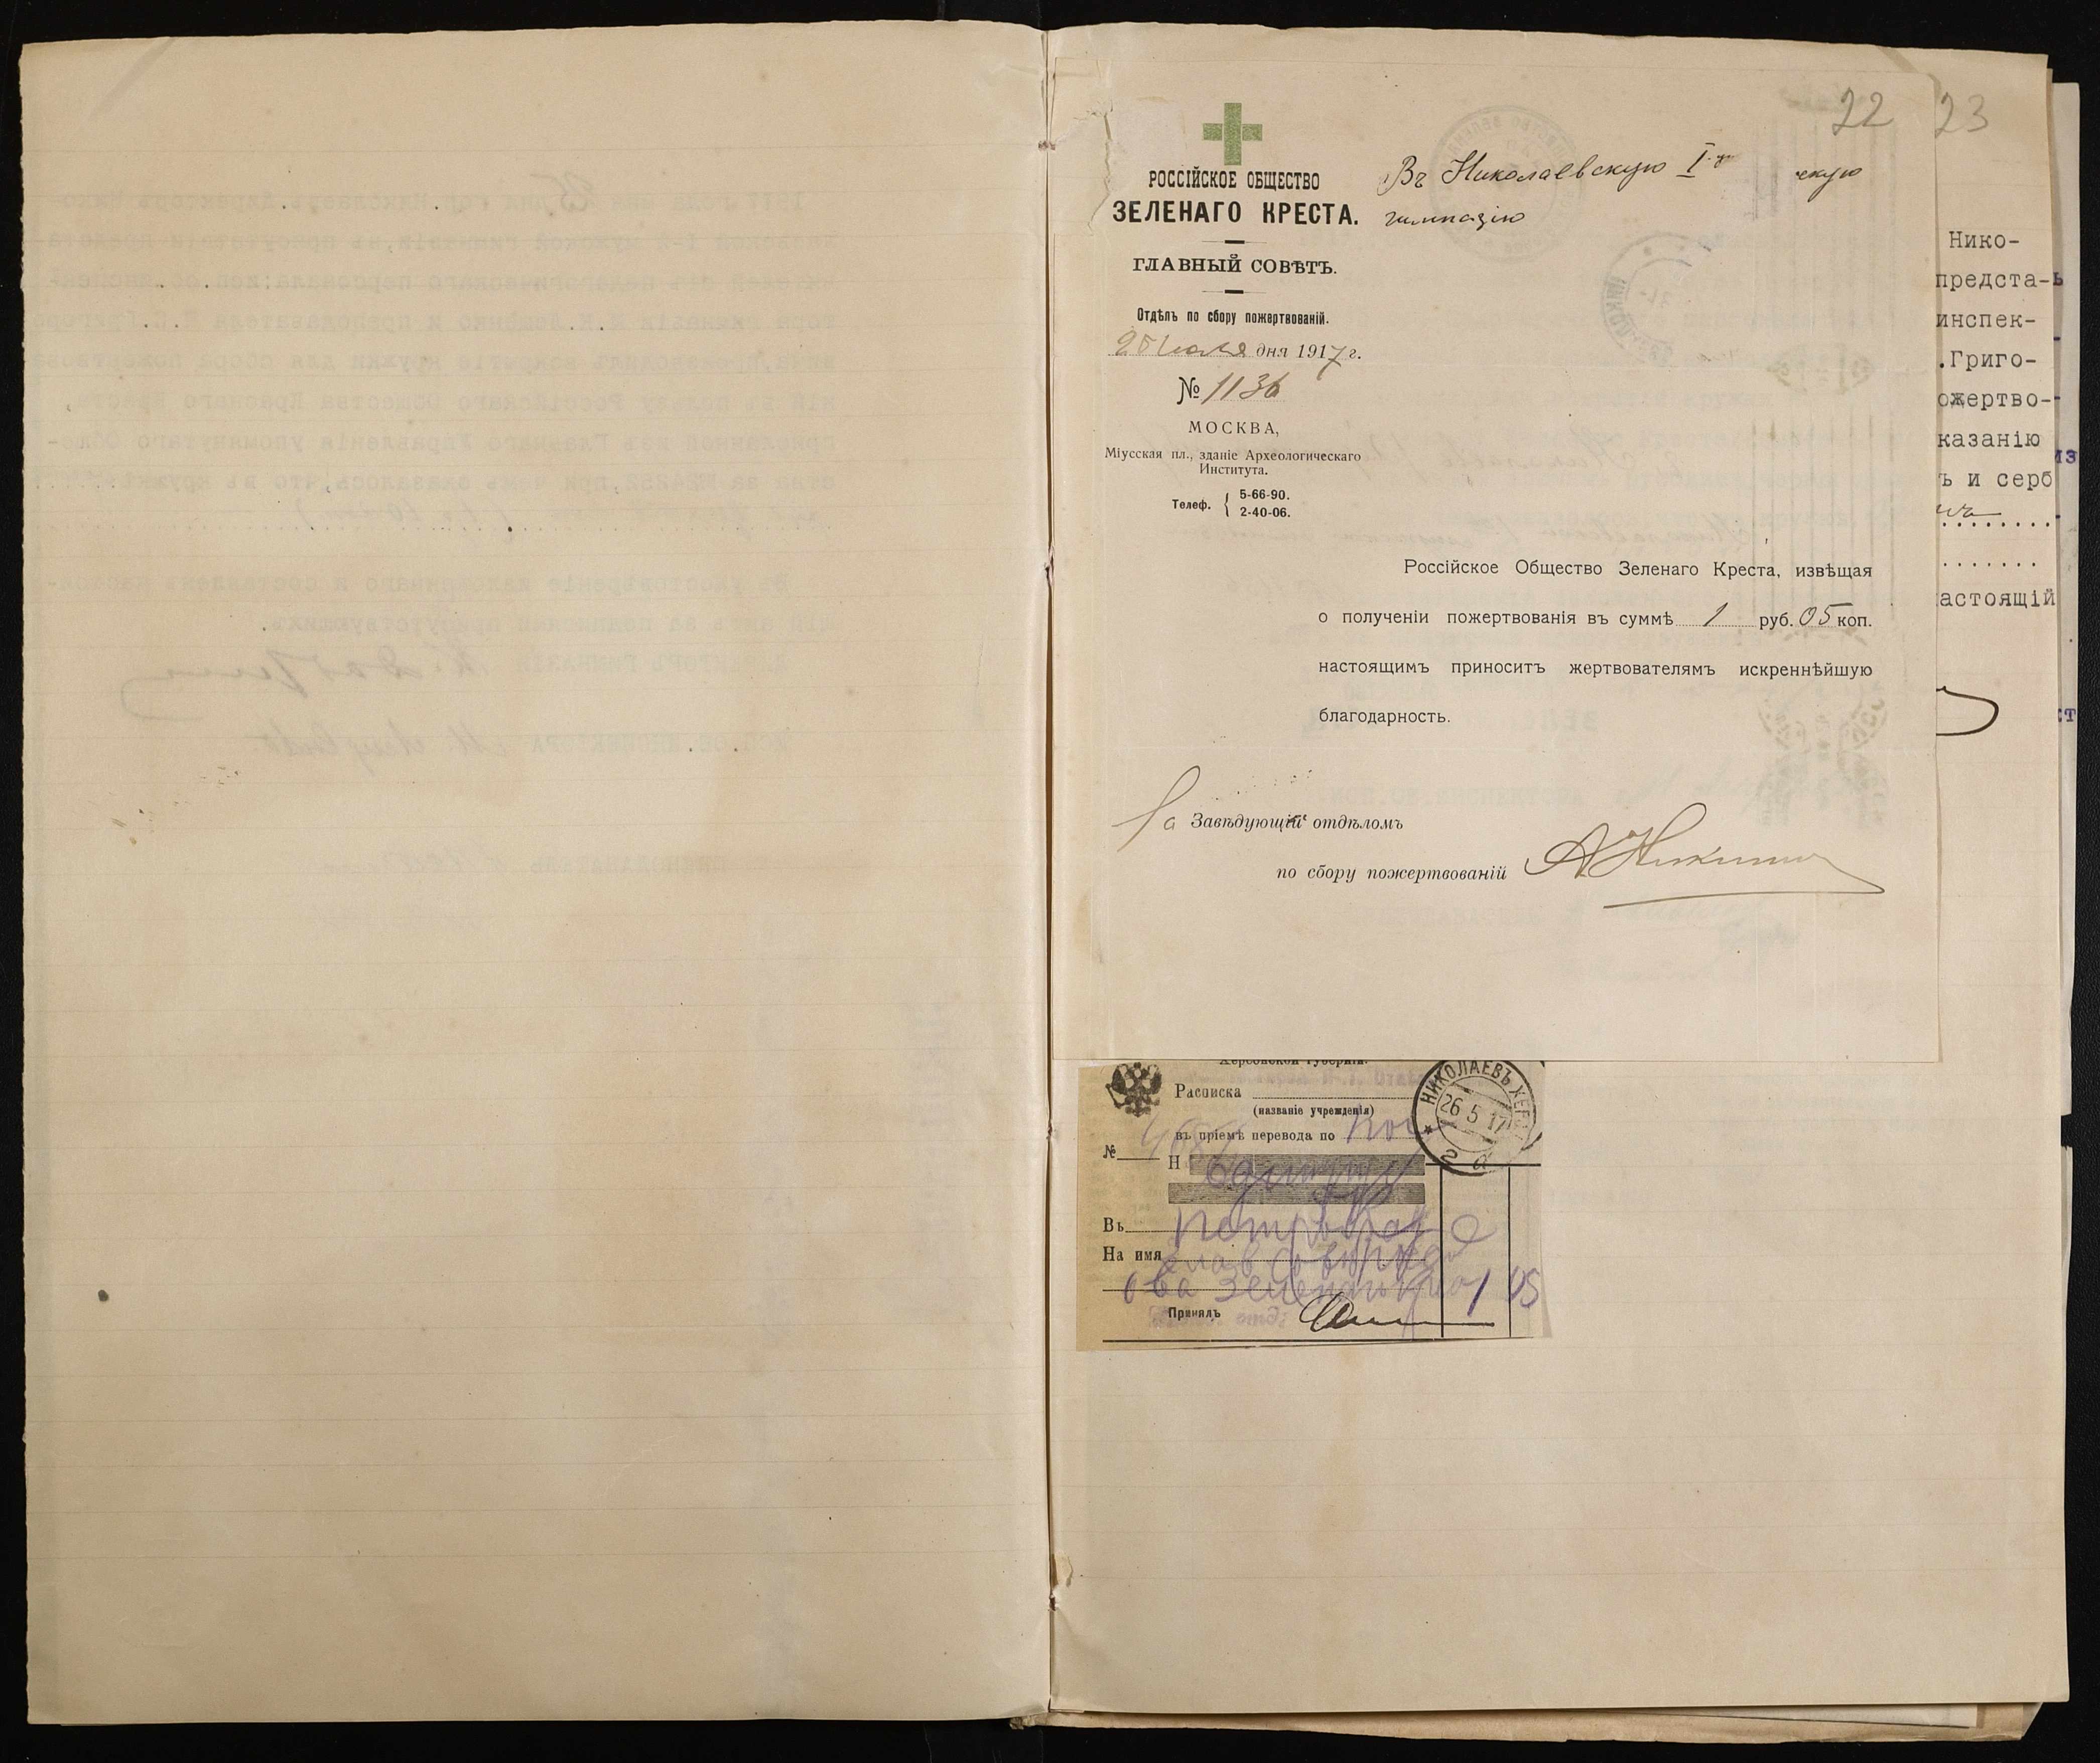 22
23
РОССІЙСКОЕ ОБЩЕСТВО
ЗЕЛЕНАГО КРЕСТА.
ГЛАВНЫЙ СОВѢТЪ.
Отдѣлъ по сбору пожертвованій.
дня 1917 г.
№ 1136
МОСКВА,
Міусская пл., зданіе Археологическаго
Института.
Телеф. { 5-66-90.
2-40-06.
Въ Николаевскую I-ю скую
гимназію
Россійское Общество Зеленаго Креста, извѣщая
о полученіи пожертвованія въ суммѣ 1 руб. 05 коп.
настоящимъ приноситъ жертвователямъ искреннѣйшую
благодарность.
За Завѣдующій отдѣломъ
по сбору пожертвованій АНикитин
Нико-
предста-
инспек-
.Григо-
ожертво-
казанію
ъ и серб
астоящій
Херсонской губерніи.
Расписка
(названіе учрежденія)
въ пріемѣ перевода по
№
Н
Въ Петроградъ
На имя
о-ва Зеленаго 1 05
Принялъ
НИКОЛАЕВЪ ХЕР
26 5 17